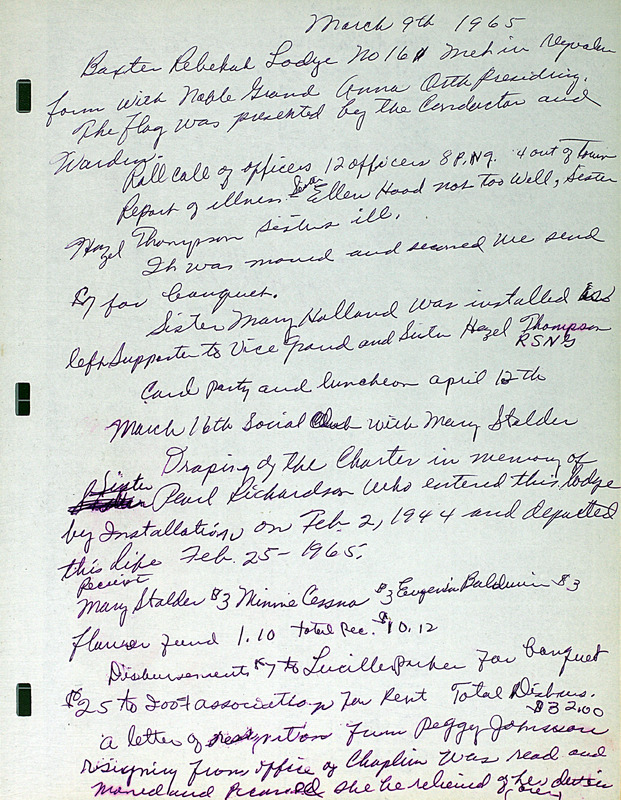 March 9th 1965
Baxter Rebekah Lodge No 161 met in regular
form with Noble Grand Anna Orth Presiding.
The flag was presented by the Conductor and
Warden.
Roll Call of officers 12 officers 8 P.N.G. 4 out of town
Report of illness Sister Ellen Hood not too well, Sister
Hazel Thompson sisters ill.
It was moved and second we send
$7 for banquet.
Sister Mary Holland was installed as
left Supporter to Vice Grand and Sister Hazel Thompson
RSNG
Card party and luncheon april 12th
March 16th Social Club with Mary Stalder
Draping of the Charter in memory of
Sister Pearl Richardson who entered this lodge
by Installation on Feb 2, 1944 and departed
this life Feb. 25 - 1965.
Receipt
Mary Stalder $3 Minnie Cessna $3 Eugenia Baldwin $3
flower fund 1.10 total Rec. $10.12
Disbursements $7 to Lucille Parker for banquet
$25 to Ioof association for Rent Total Disburs.
$32.00
a letter of from Peggy Johnson
resigning from office of Chaplin was read and
moved and she be relieved of her duties
(over)